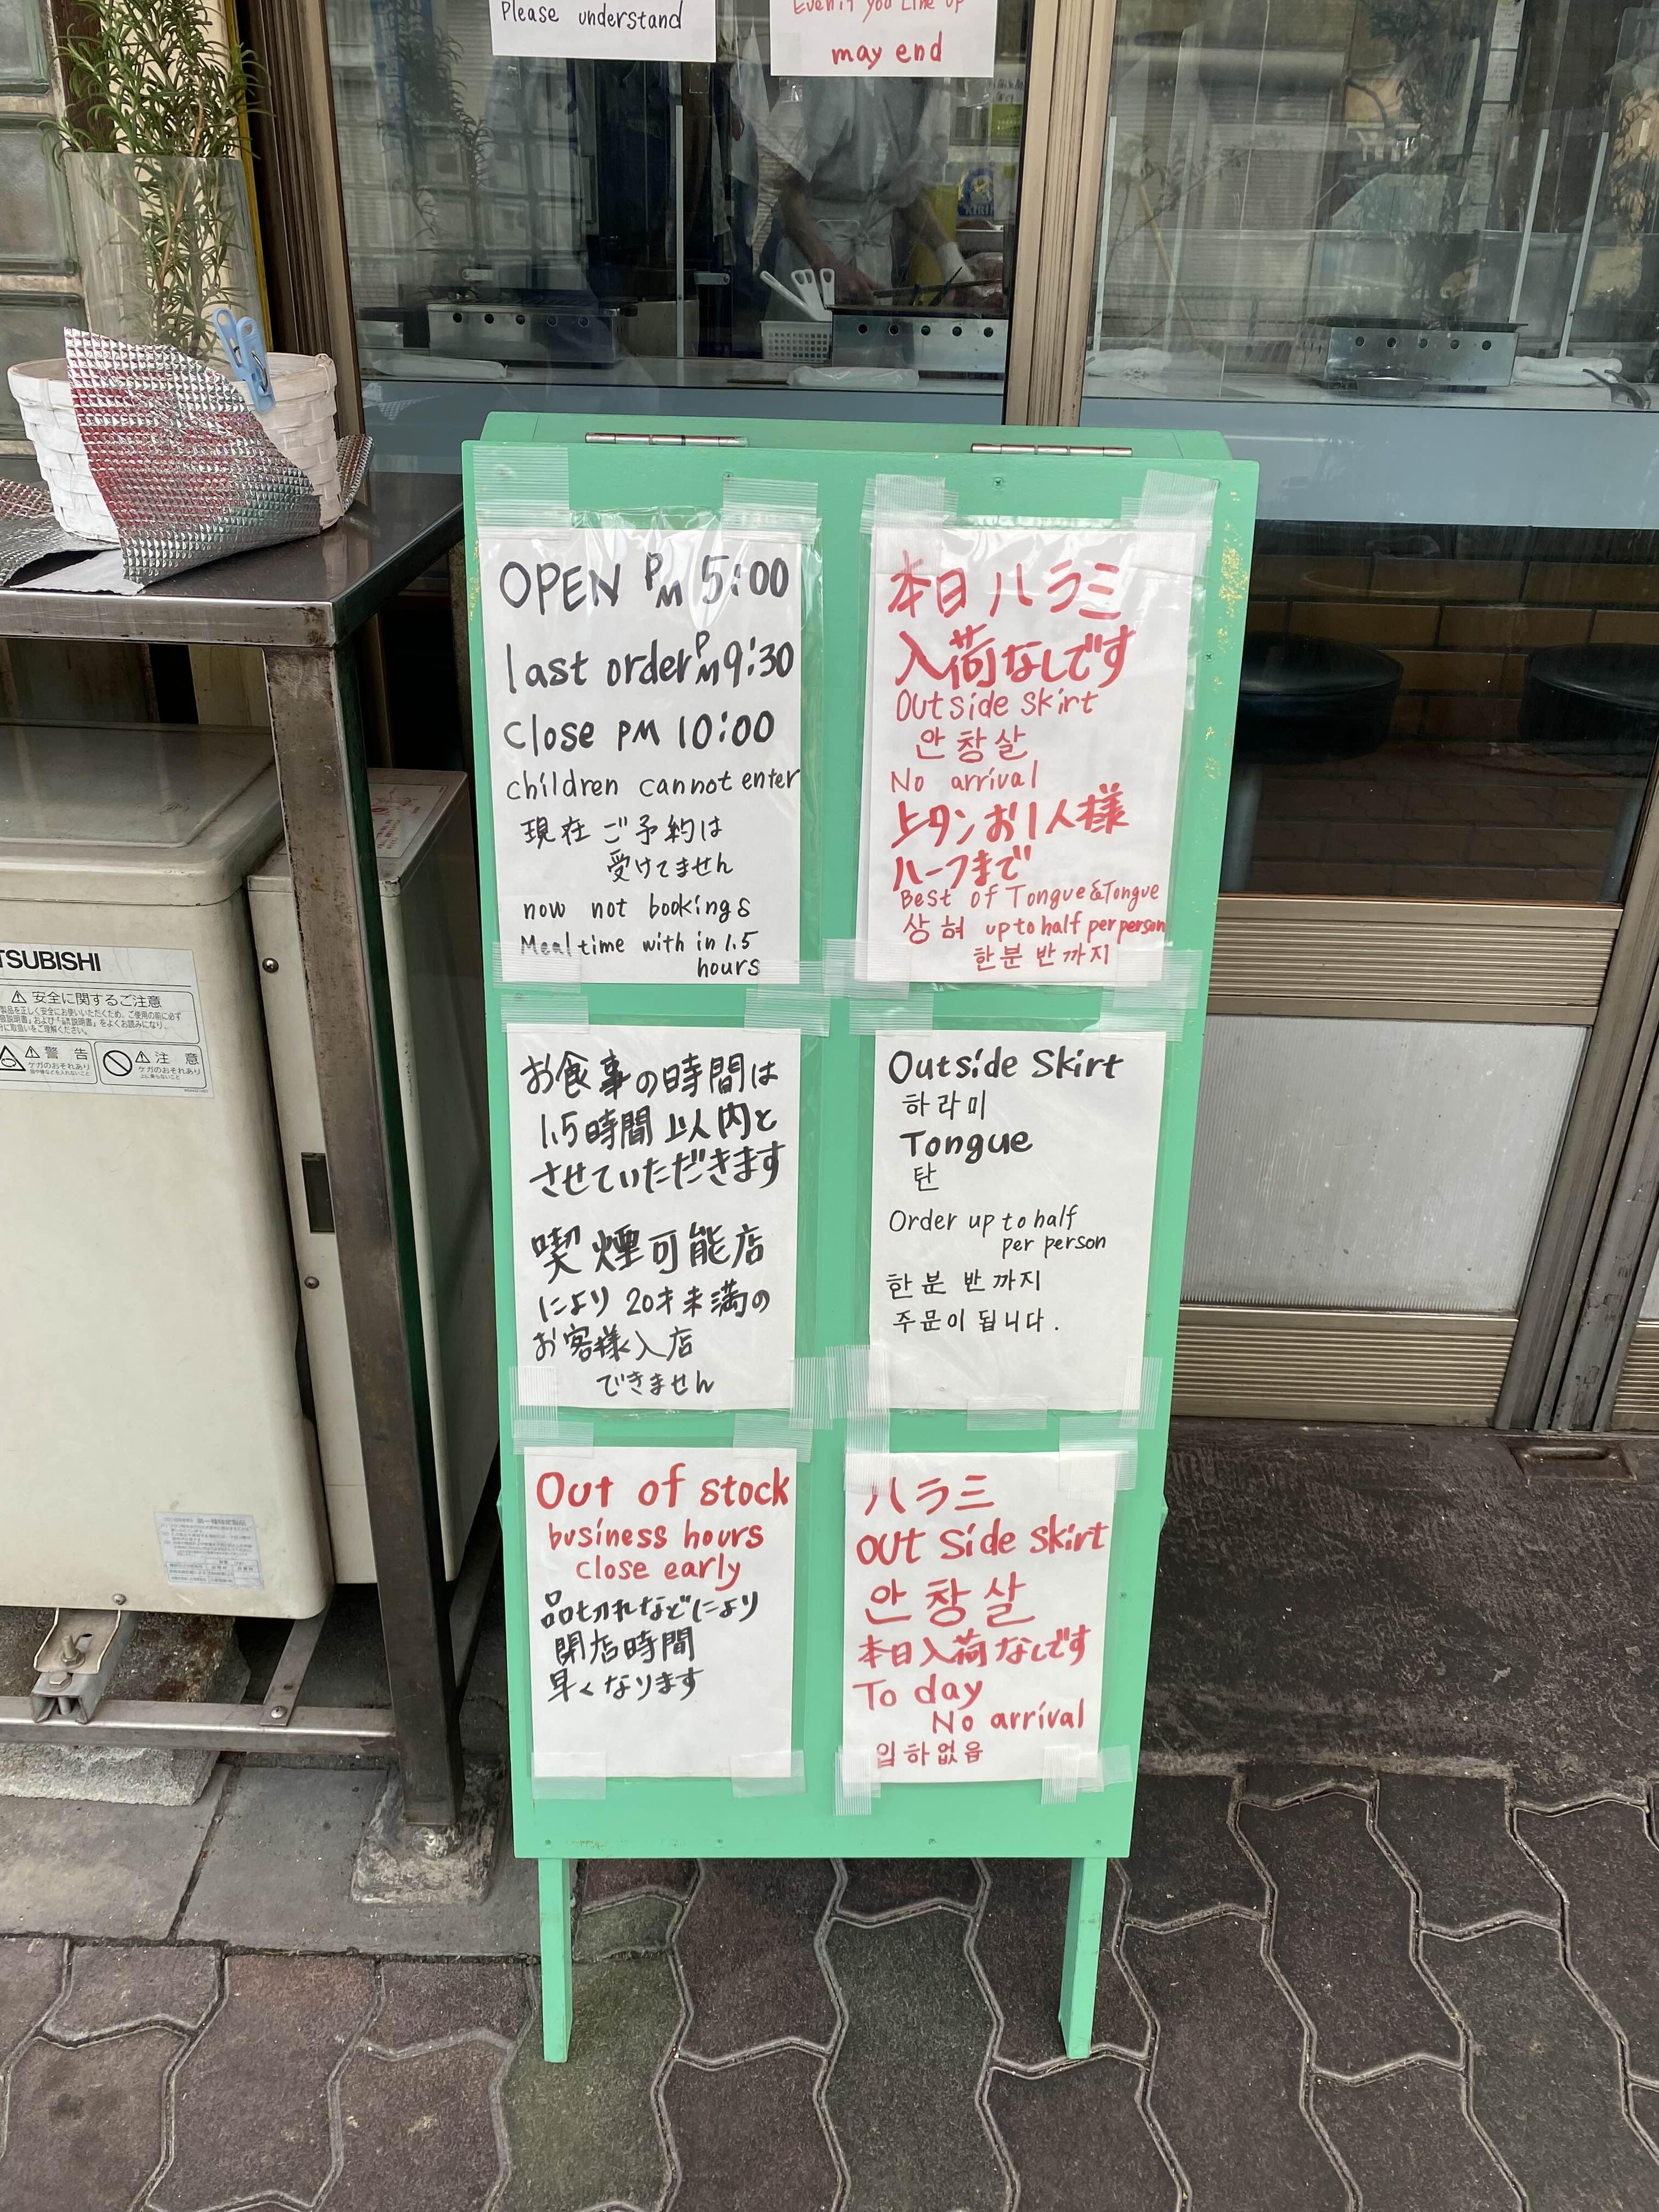 Please understand
Even if you line up
may end
OPEN PM 5:00
last order PM 9:30
close PM 10:00
children cannot enter
現在 ご予約は
受けてません
now not bookings
Meal time with in 1.5
hours
本日 ハラミ
入荷なしです
Outside skirt
안창살
No arrival
上タンお1人様
ハーフまで
Best of Tongue&Tongue
상혀 up to half per person
한분 반까지
お食事の時間は
1.5時間以内と
させていただきます
喫煙可能店
により 20才未満の
お客様入店
できません
Outside Skirt
하라미
Tongue
탄
Order up to half
per person
한분 반까지
주문이 됩니다.
Out of stock
business hours
close early
品切れなどにより
閉店時間
早くなります
ハラミ
OUT Side skirt
안창살
本日入荷なしです
To day
No arrival
입하없음
TSUBISHI
安全に関するご注意
警告
ケガのおそれあり
注意
ケガのおそれあり